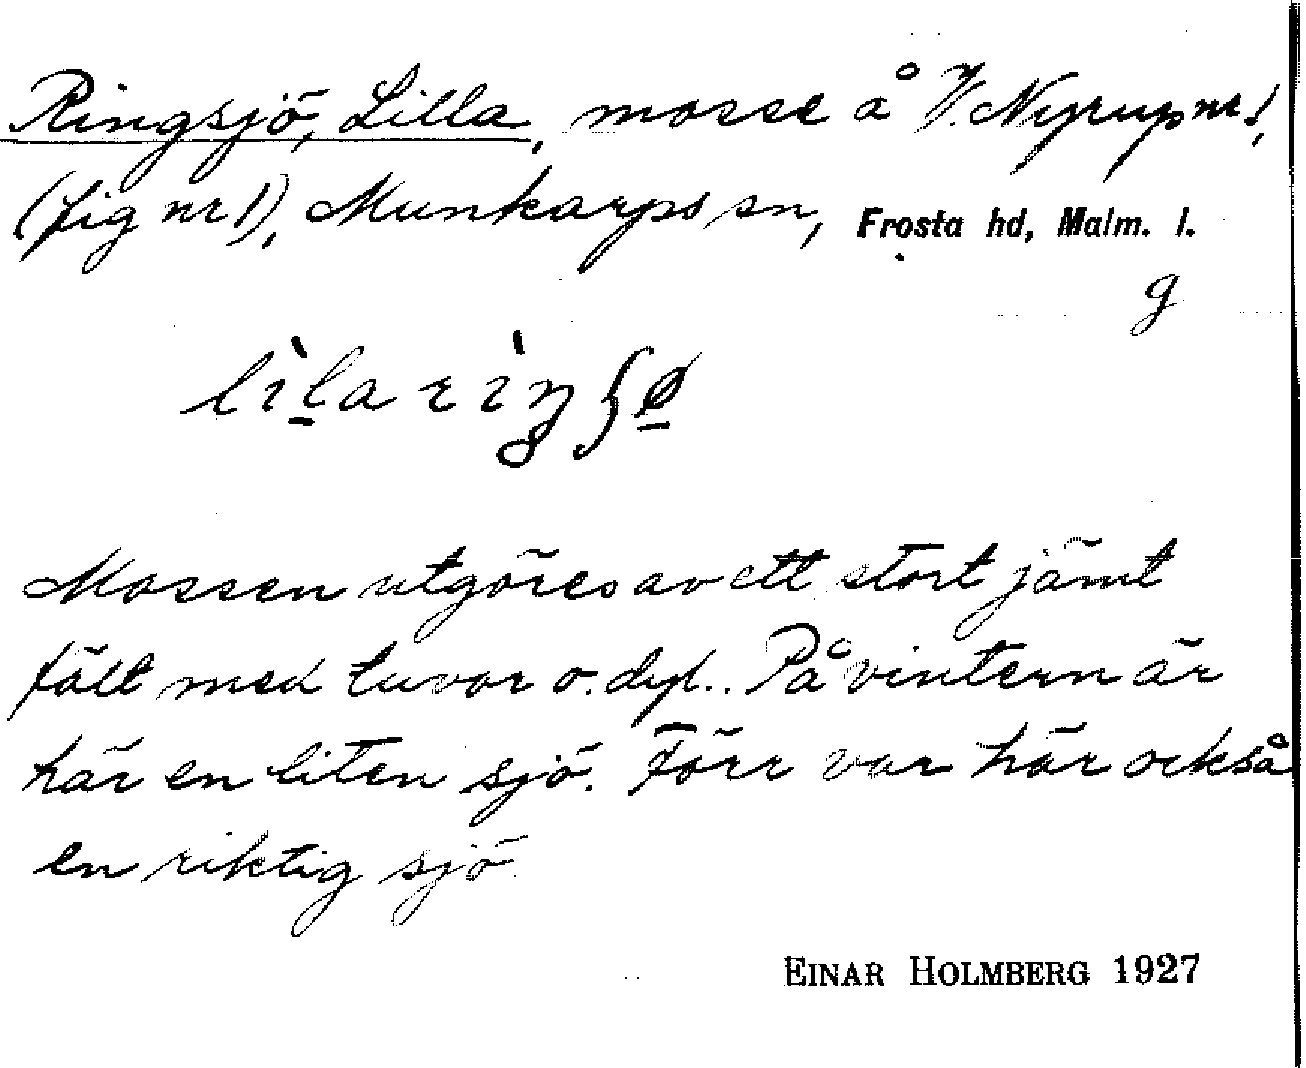 Ringsjö, Lilla, mosse å V. Nyrup nr 1,
(fig nr 1), Munkarps sn, Frosta hd, Malm. l.
g
Mossen utgöres av ett stort jämt
fält med tuvor o. dyl.. På vintern är
här en liten sjö. Förr var här också
en riktig sjö.
EINAR HOLMBERG 1927